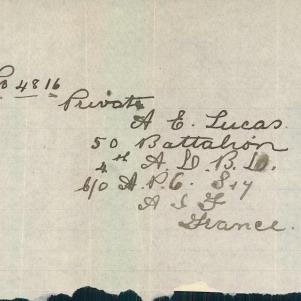 No 4816
Private
A E. Lucas.
50 Battalion
4th A. D. B. D.
c/o A. P. O. S 17
A I F
France.